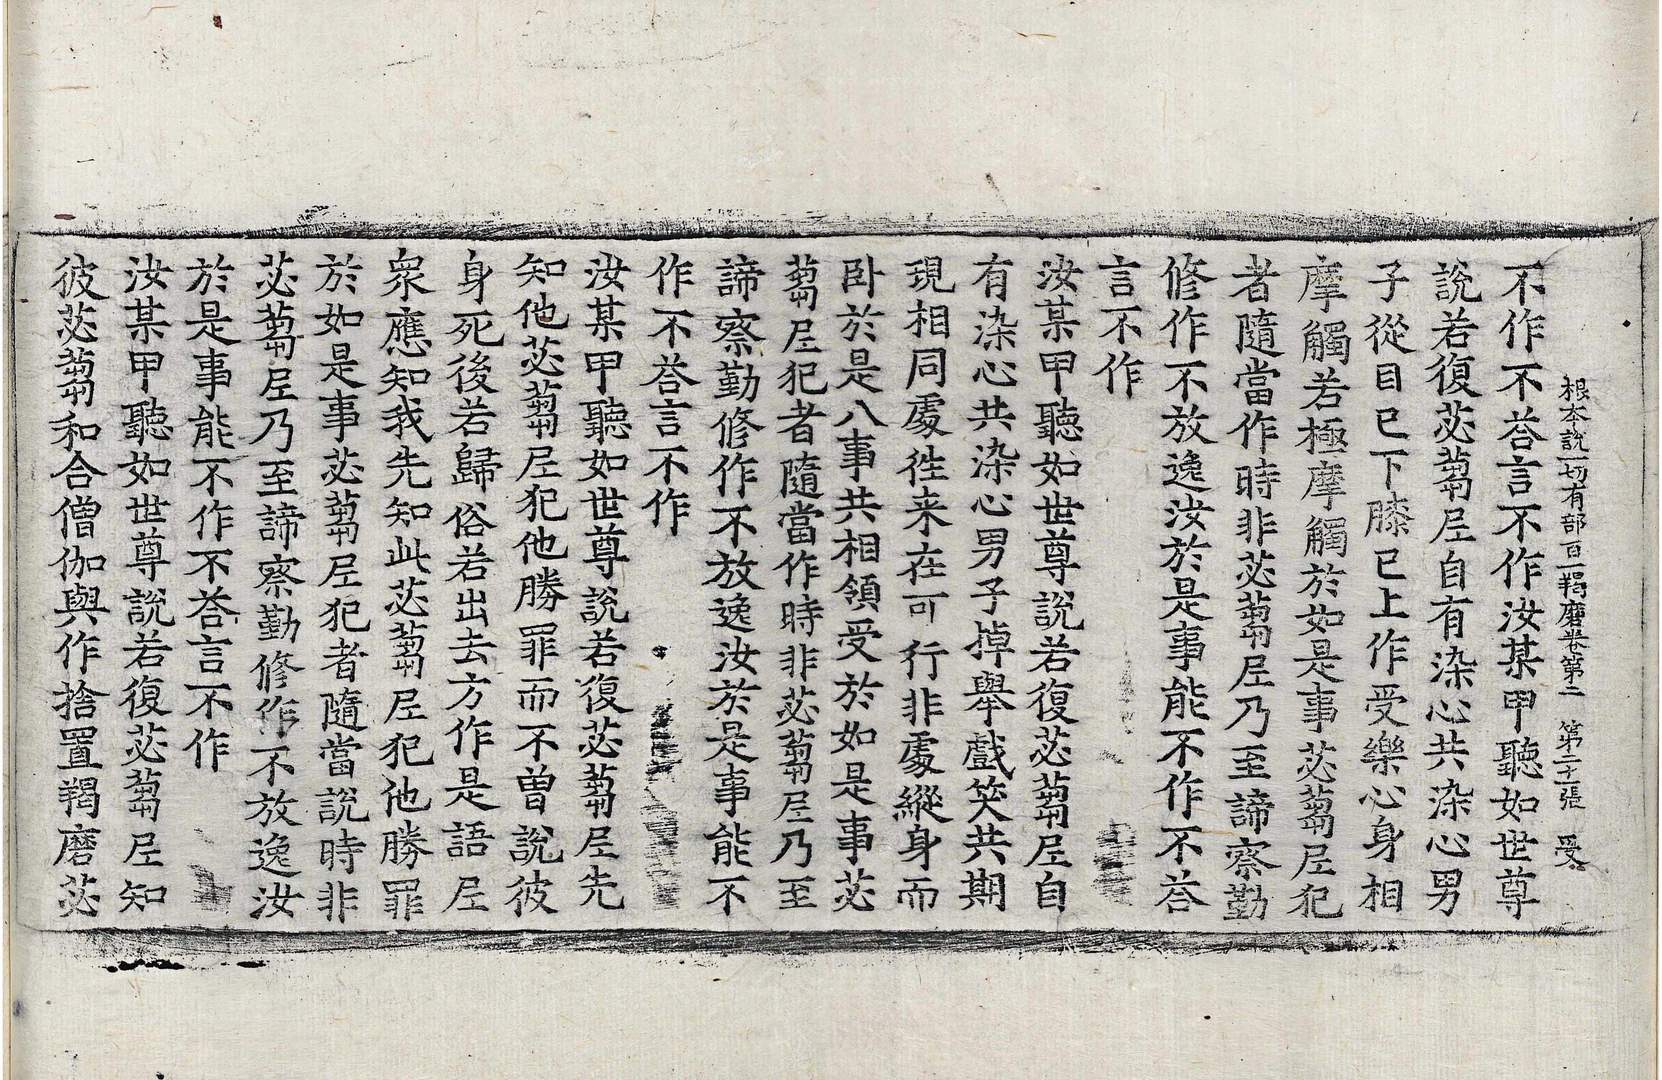 根本說一切有部百一羯磨卷第二 第二十一張 受
不作不荅言不作汝某甲聽如世尊
說若復苾蒭尼自有染心共染心男
子從目已下膝已上作受樂心身相
摩觸若極摩觸於如是事苾蒭尼犯
者隨當作時非苾蒭尼乃至諦察勤
修作不放逸汝於是事能不作不荅
言不作
汝某甲聽如世尊說若復苾蒭尼自
有染心共染心男子掉舉戲笑共期
現相同處徃来在可行非處縱身而
卧於是八事共相領受於如是事苾
蒭尼犯者隨當作時非苾蒭尼乃至
諦察勤修作不放逸汝於是事能不
作不荅言不作
汝某甲聽如世尊說若復苾蒭尼先
知他苾蒭尼犯他勝罪而不曾說彼
身死後若歸俗若出去方作是語尼
衆應知我先知此苾蒭尼犯他勝罪
於如是事苾蒭尼犯者隨當說時非
苾蒭尼乃至諦察勤修作不放逸汝
於是事能不作不荅言不作
汝某甲聽如世尊說若復苾蒭尼知
彼苾蒭和合僧伽與作捨置羯磨苾